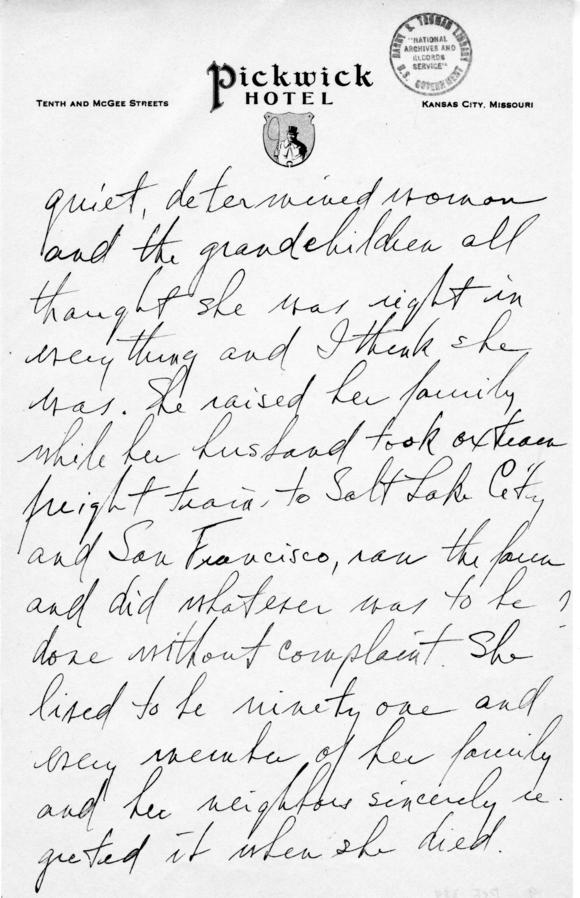 HARRY S. TRUMAN LIBRARY
"NATIONAL
ARCHIVES AND
RECORDS
SERVICE"
U.S. GOVERNMENT
Pickwick
HOTEL
TENTH AND MCGEE STREETS
KANSAS CITY, MISSOURI
quiet, determined woman
and the grandchildren all
thought she was right in
everything and I think she
was. She raised her family
while her husband took ox team
freight trains to Salt Lake City
and San Francisco, ran the farm
and did whatever was to be
done without complaint. She
lived to be ninety one and
every member of her family
and her neighbors sincerely re-
greted it when she died.